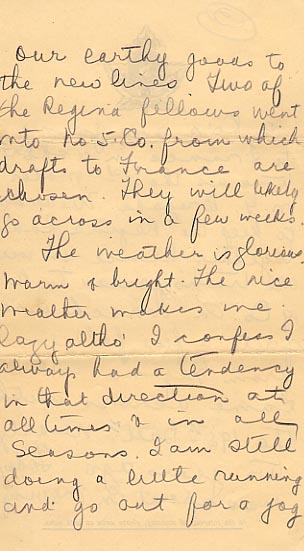 our earthy goods to
the new lines. Two of
the Regina fellows went
into No 5. Co. from which
drafts to France are
chosen. They will likely
go across in a few weeks.
The weather is glorious,
warm & bright. The nice
weather makes me
lazy altho' I confess I
always had a tendency
in that direction at
all times & in all
seasons. I am still
doing a little running
and go out for a jog